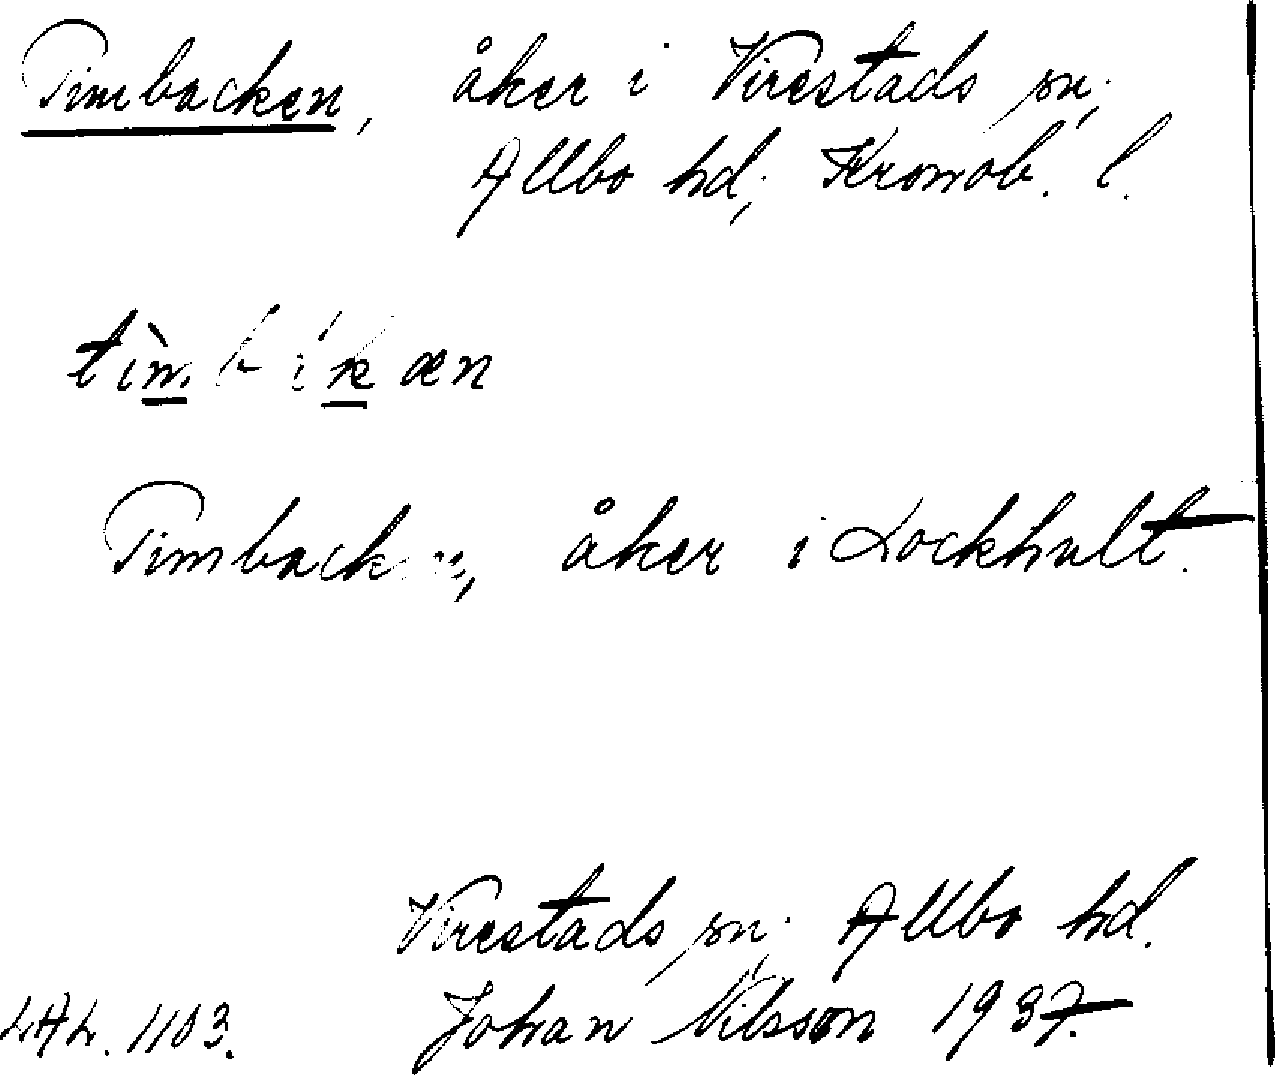 Timbacken, åker i Virestads sn;
Allbo hd; Kronob. l.
Timbacken, åker i Lockhult.
Virestads sn; Allbo hd.
LAL. 1103. Johan Nilsson 1937.